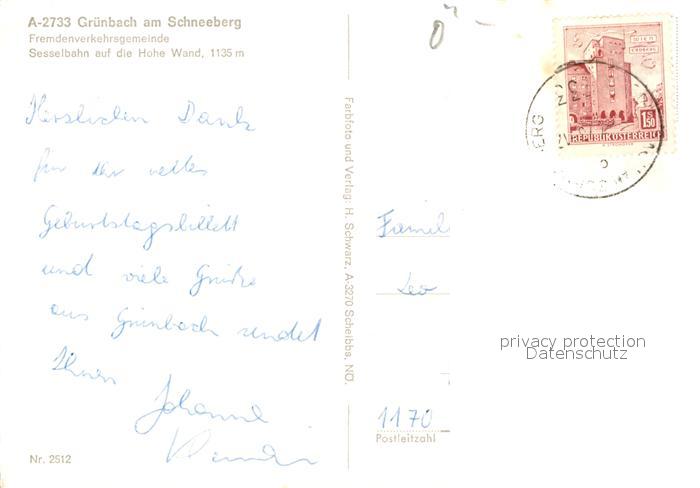 A-2733 Grünbach am Schneeberg
Fremdenverkehrsgemeinde
Sesselbahn auf die Hohe Wand, 1135 m
Herzlichen Dank
für das nette
Geburtstagsbillett
und viele Grüße
aus Grünbach sendet
Ihnen
Johanna
Nr. 2512
Farbfoto und Verlag: H. Schwarz, A-3270 Scheibbs, NÖ.
WIEN
ERDBERG
1 S 50
REPUBLIK ÖSTERREICH
Famil
Leo
privacy protection
Datenschutz
1170
Postleitzahl